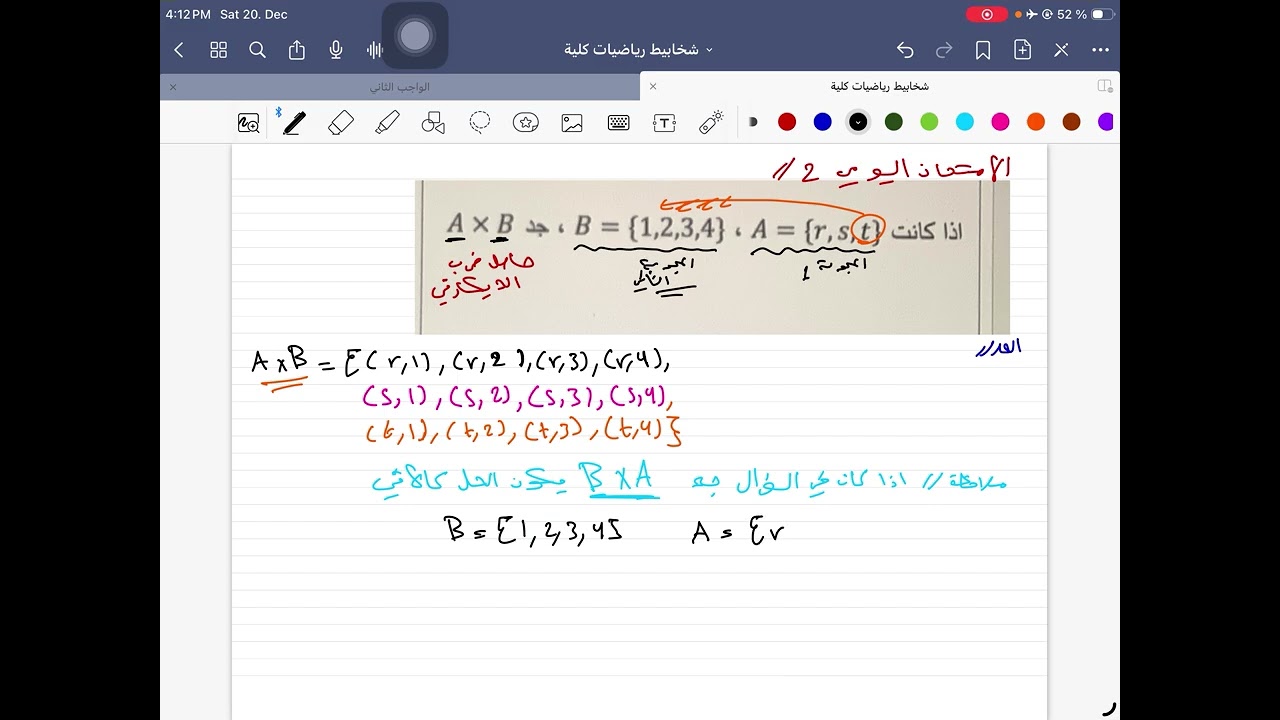 4:12 PM Sat 20. Dec
52 %
شخابيط رياضيات كلية
الواجب الثاني
شخابيط رياضيات كلية
الامتحان اليومي 2 //
اذا كانت A = {r, s, t} ، B = {1,2,3,4} ، جد A × B
المجموعة 1
المجموعة الثانية
حاصل ضرب الديكارتي
الحل //
A × B = {(r,1), (r,2), (r,3), (r,4),
(s,1), (s,2), (s,3), (s,4),
(t,1), (t,2), (t,3), (t,4)}
ملاحظة // اذا كان في السؤال جد B × A يكون الحل كالأتي
B = {1,2,3,4} A = {r